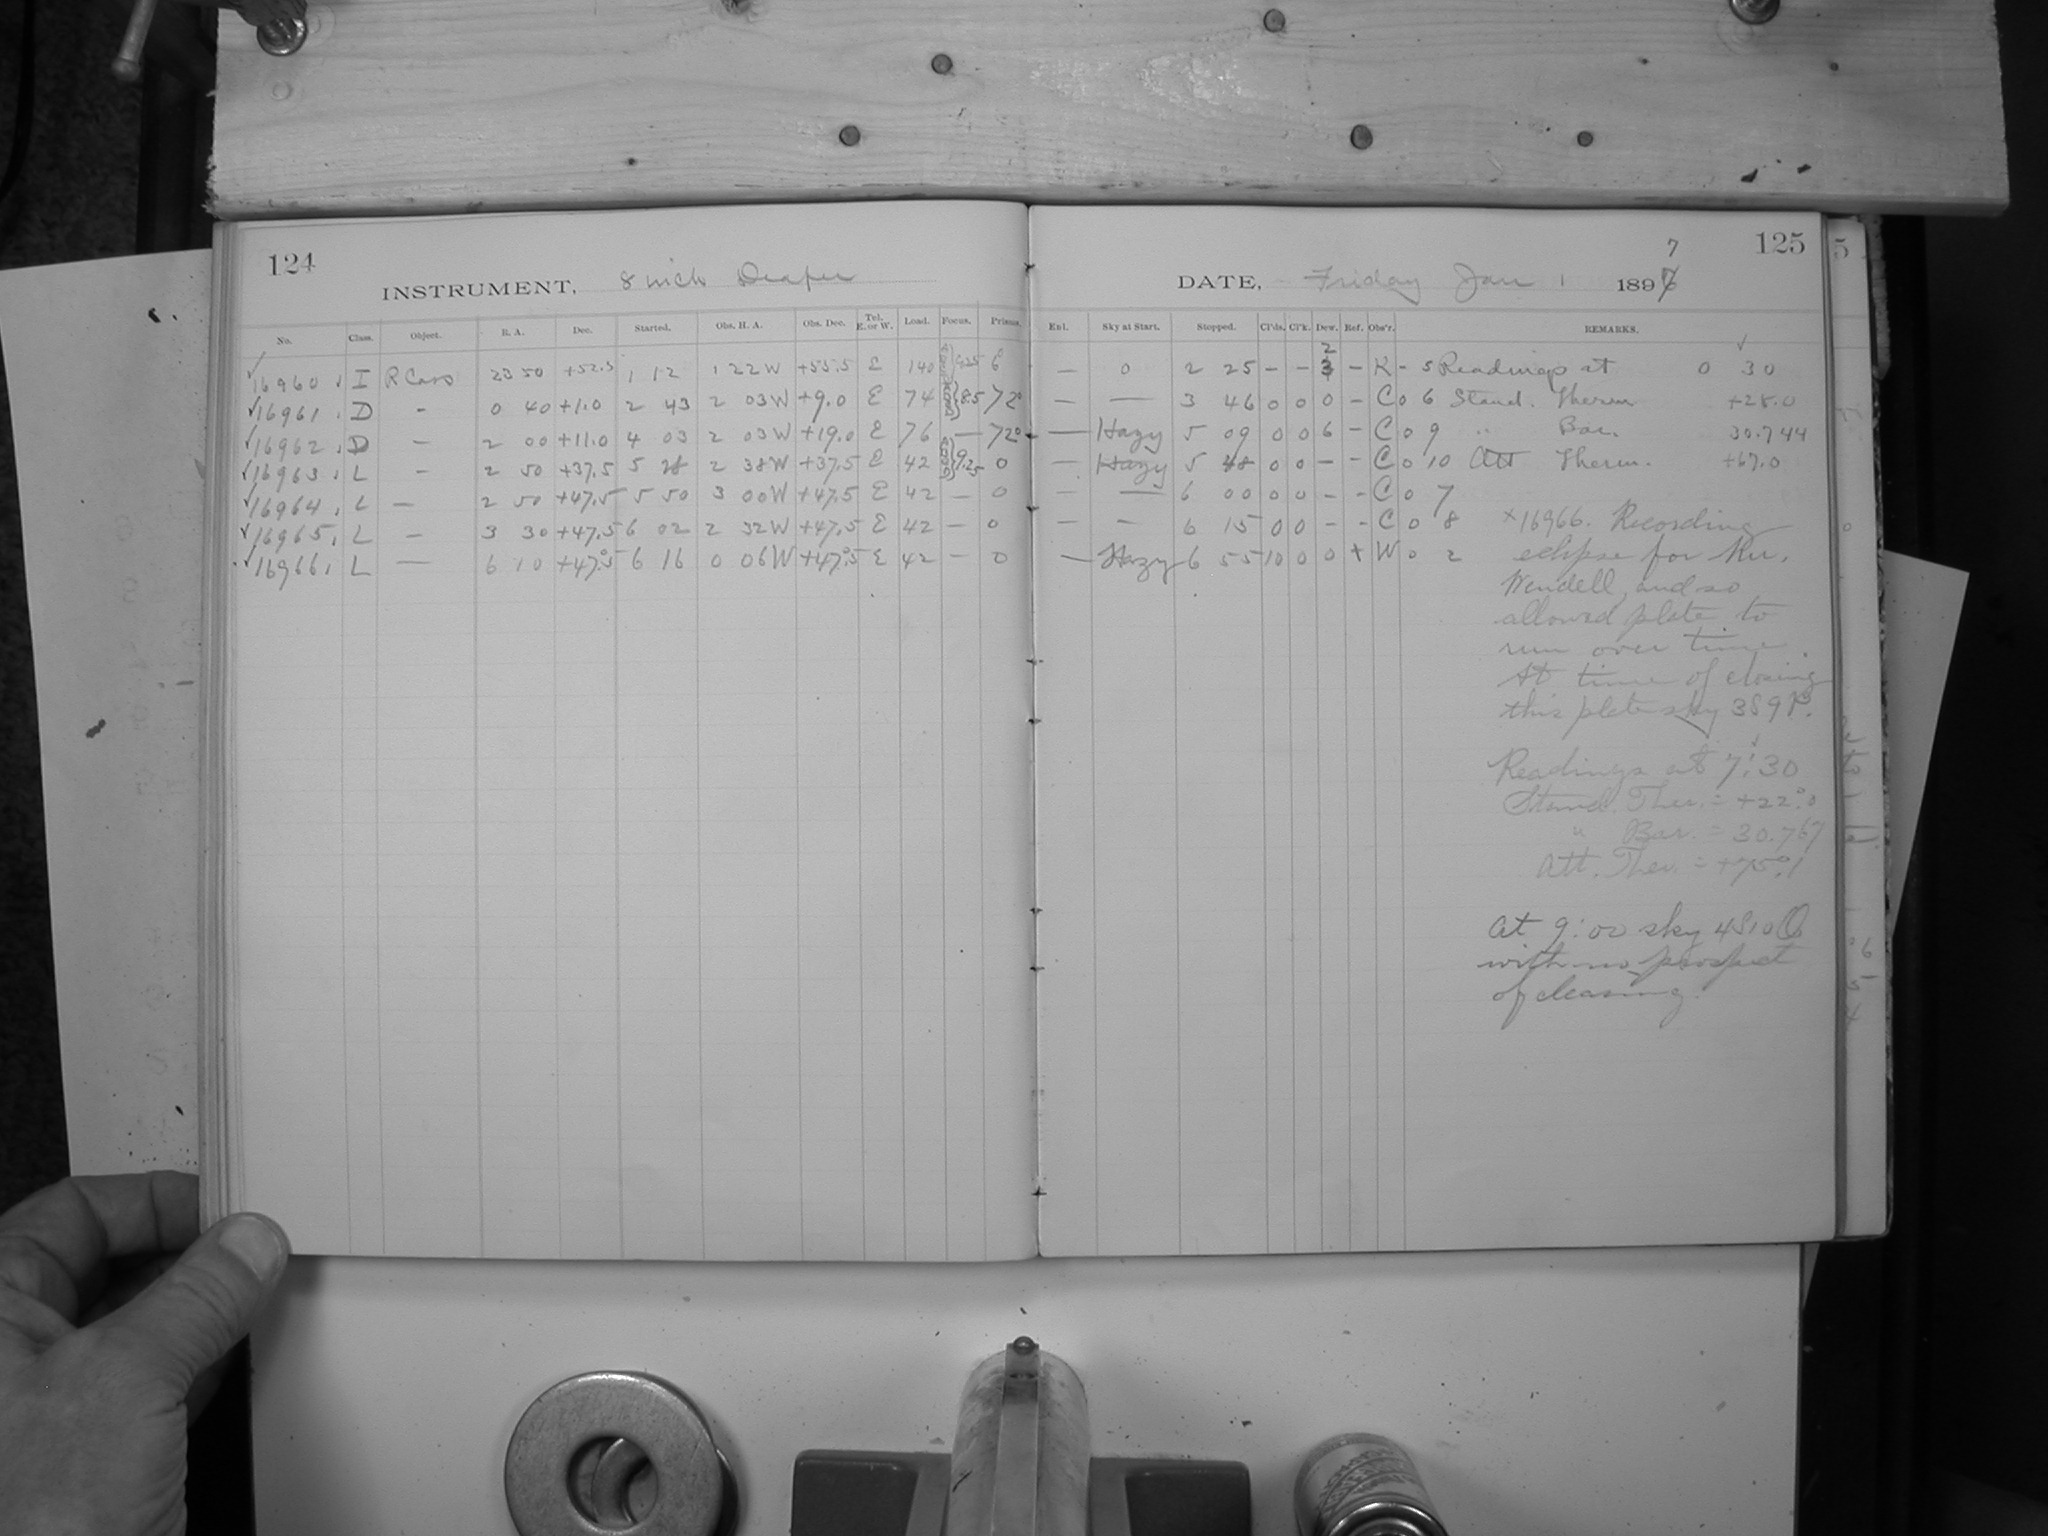 124
INSTRUMENT, 8 inch Draper
No. Class. Object. R. A. Dec. Started. Obs. H. A. Obs. Dec. Tel. E. or W. Load. Focus. Prisms.
16960 I R Cass 23 50 +52.5 1 12 1 22 W +55.5 E 140 9.25 6
16961 D - 0 40 +1.0 2 43 2 03 W +9.0 E 74 8.5 72°
16962 D - 2 00 +11.0 4 03 2 03 W +19.0 E 76 — 72°
16963 L - 2 50 +37.5 5 28 2 38 W +37.5 E 42 9.25 0
16964 L — 2 50 +47.5 5 50 3 00 W +47.5 E 42 — 0
16965 L — 3 30 +47.5 6 02 2 32 W +47.5 E 42 — 0
16966 L — 6 10 +47.5 6 16 0 06 W +47.5 E 42 — 0
7
125
DATE, Friday Jan 1 1896
Enl. Sky at Start. Stopped. Cl'ds. Cl'k. Dew. Ref. Obs'r. REMARKS.
2
— 0 2 25 - - 3 - K - 5 Readings at 0 30
— — 3 46 0 0 0 - C 0 6 Stand. Therm +28.0
— Hazy 5 09 0 0 6 - C 0 9 " Bar. 30.744
— Hazy 5 48 0 0 - - C 0 10 Att Therm. +67.0
— — 6 00 0 0 - - C 0 7
— - 6 15 0 0 - - C 0 8
— Hazy 6 55 10 0 0 + W 0 2
×16966. Recording
eclipse for Mr.
Wendell, and so
allowed plate to
run over time.
At time of closing
this plate sky 3S9P.
Readings at 7:30
Stand. Ther. = +22°.0
" Bar. = 30.767
Att. Ther. = +75°.1
At 9:00 sky 4S10
with no prospect
of clearing.